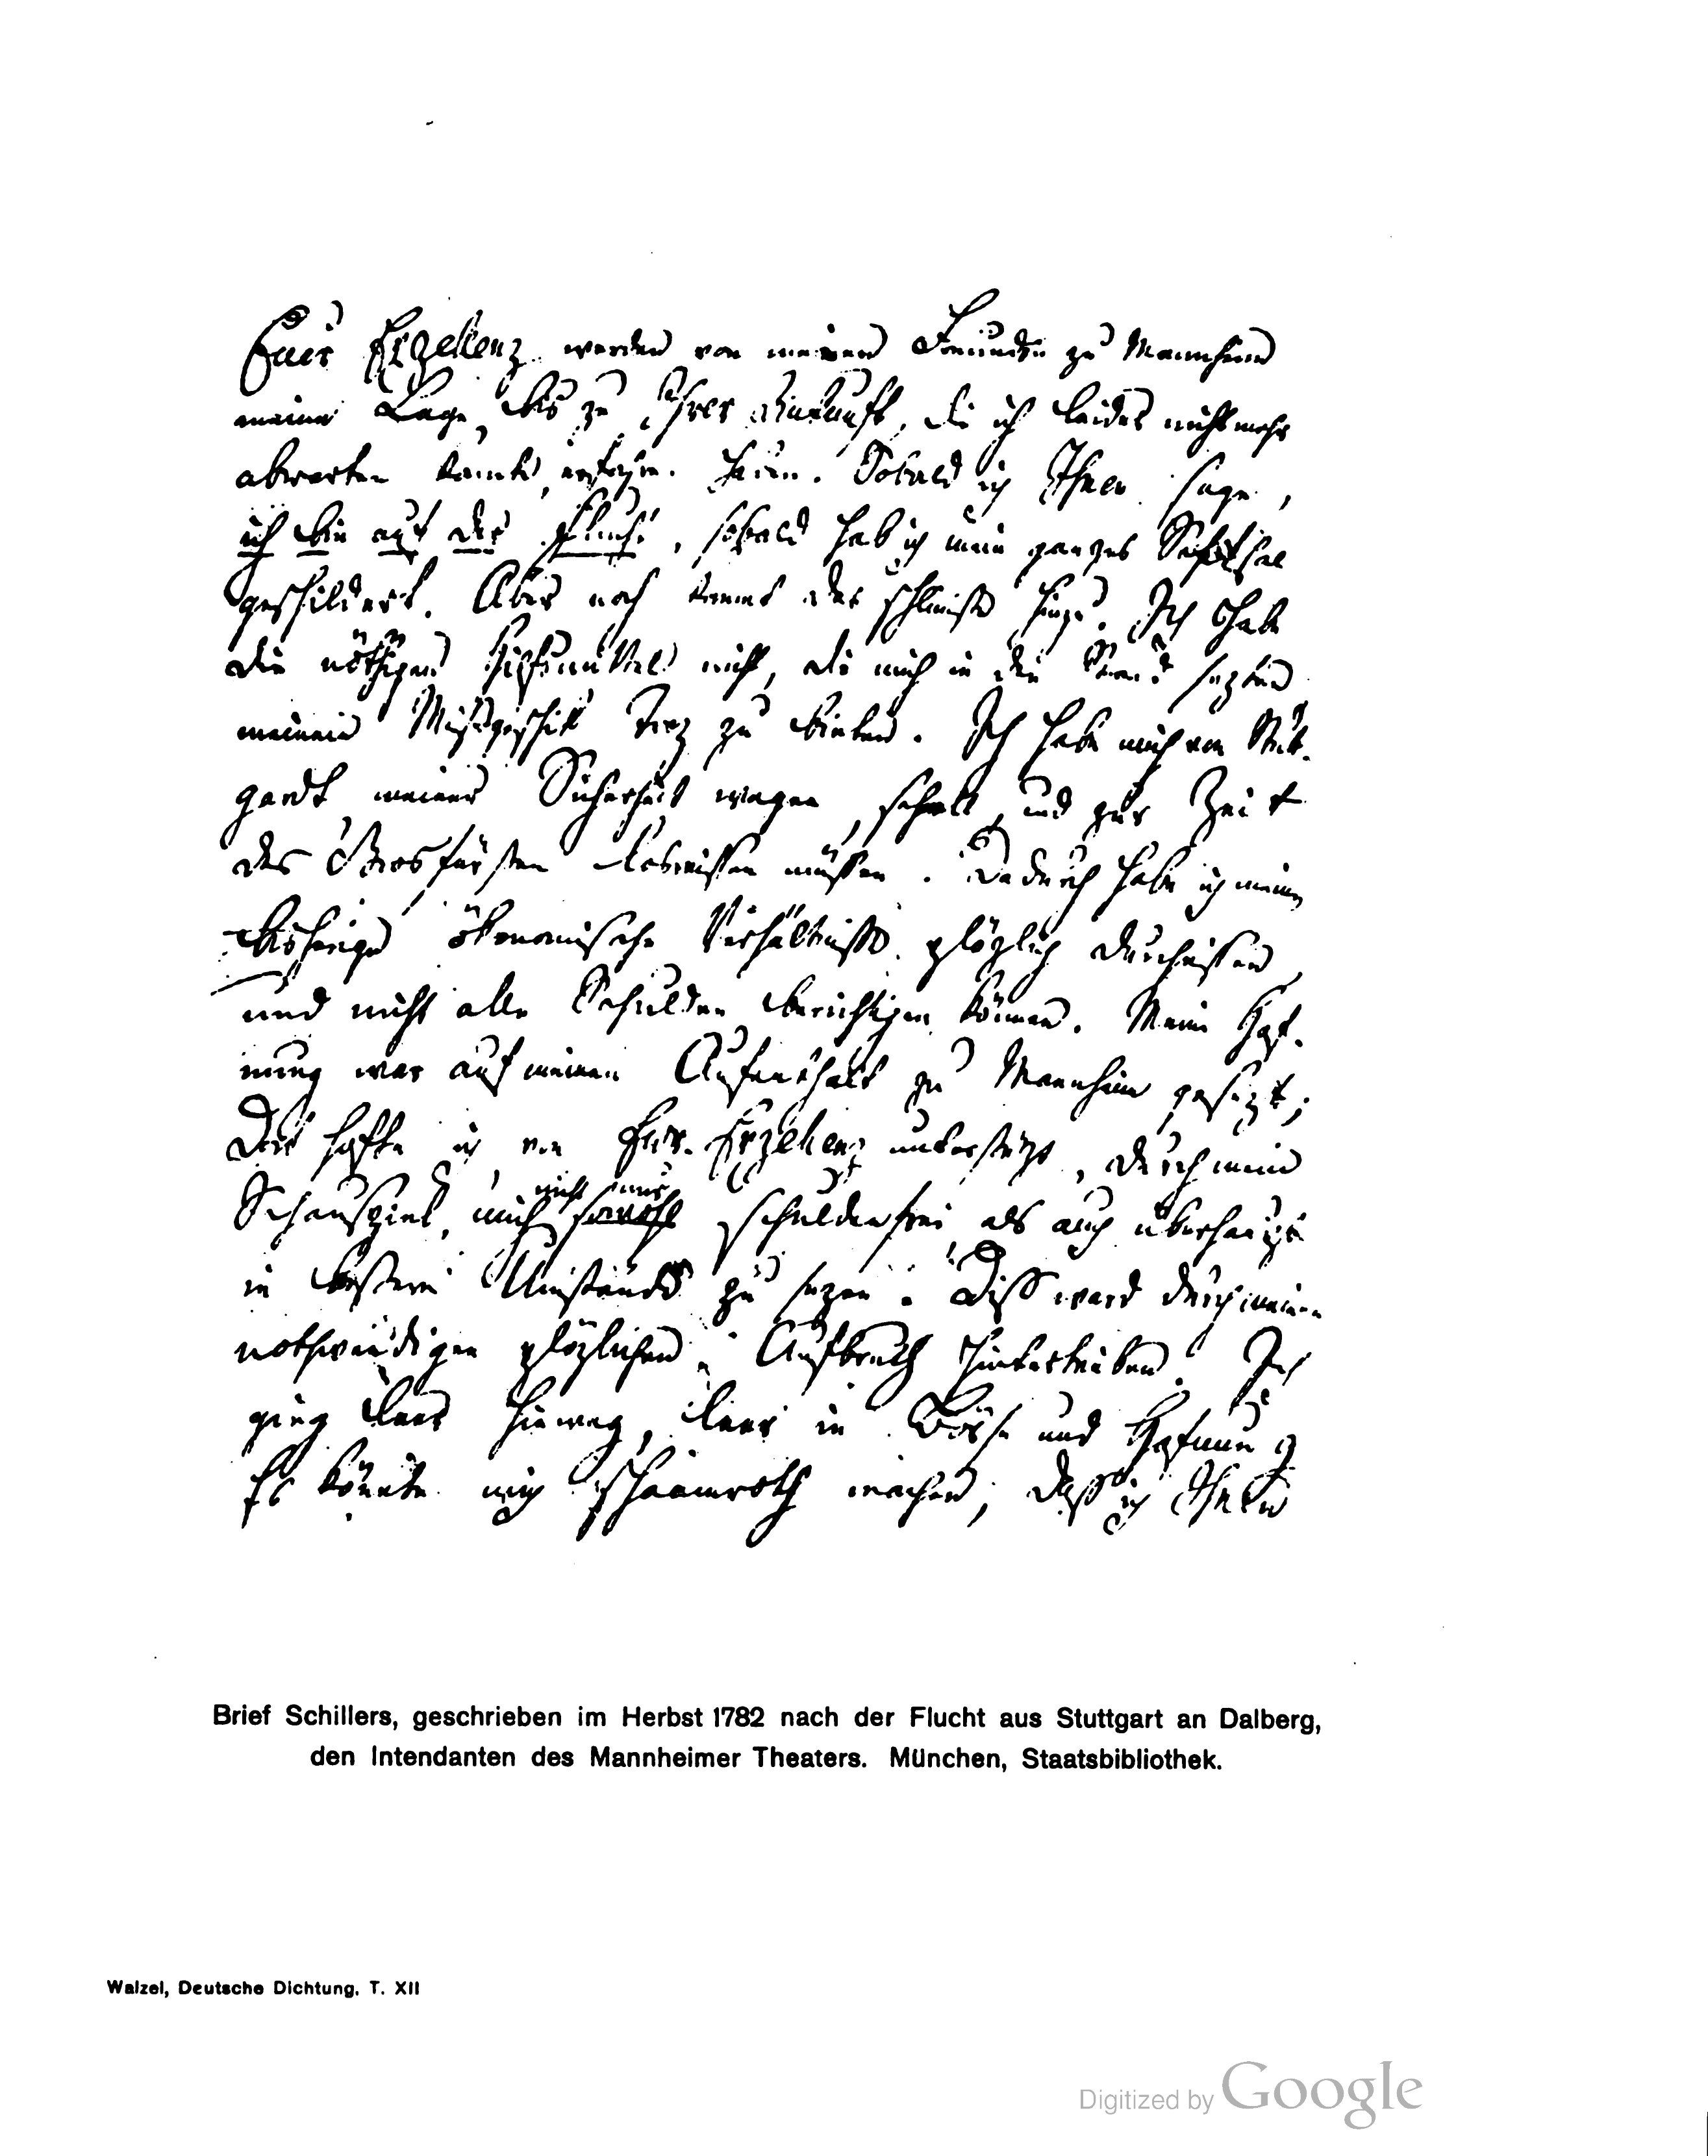 Euer Exzellenz werden von meinen Freunden zu Mannheim
meine Lage bis zu Ihrer Ankunft, die ich leider nicht mehr
abwarten konnte, erfahren haben. Sobald ich Ihnen sage,
ich bin auf der Flucht, sobald hab ich mein ganzes Schiksal
geschildert. Aber noch kommt das schlimste hinzu. Ich habe
die nöthigen Hilfsmittel nicht, die mich in den Stand sezten
meinem Misgeschik Troz zu bieten. Ich habe mich von Stut-
gardt, meiner Sicherheit wegen, schnell, und zur Zeit
des Grosfürsten losreissen müssen. Dadurch habe ich meine
bisherige ökonomische Verhältnisse plözlich durchrissen,
und nicht alle Schulden berichtigen können. Meine Hof-
nung war auf meinen Aufenthalt zu Mannheim gesezt;
Dort hofte ich von Eur. Exzellenz unterstüzt, durch mein
Schauspiel, mich nicht nur sowohl schuldenfrei, als auch überhaupt
in bessere Umstände zu sezen. Diss ward durch meinen
nothwendigen plözlichen Aufbruch hintertrieben. Ich
ging leer hinweg, leer in Börse und Hofnung
Es könnte mich schaamroth machen, daß ich Ihnen
Brief Schillers, geschrieben im Herbst 1782 nach der Flucht aus Stuttgart an Dalberg,
den Intendanten des Mannheimer Theaters. München, Staatsbibliothek.
Walzel, Deutsche Dichtung. T. XII
Digitized by Google